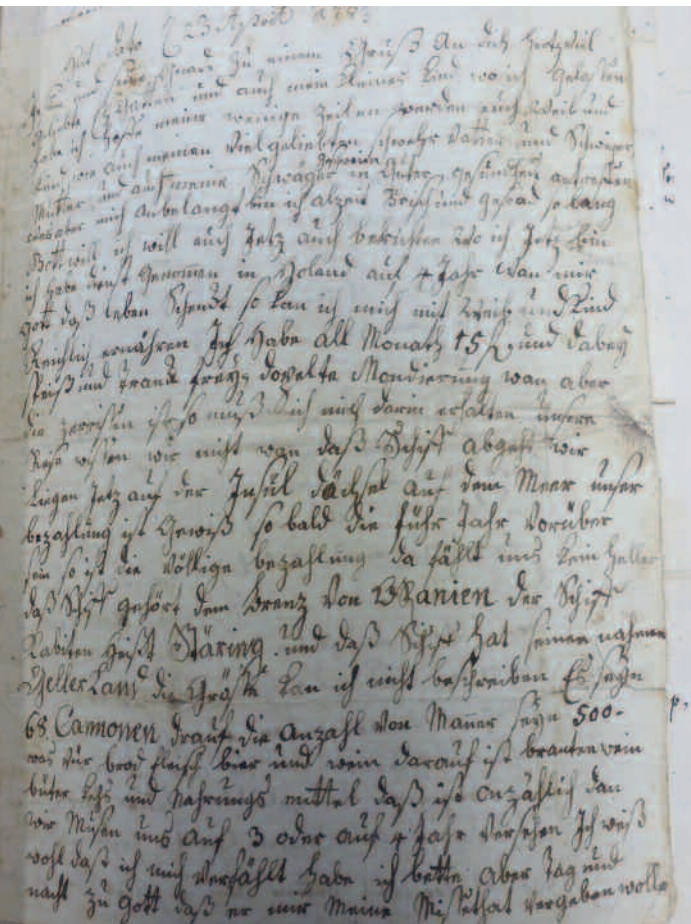 Hut dato 23 April 178
zu einem Gruß An dich Hertzviel
geliebte und auch mein Kleines Kind wo ich gelassen
habe ich Hoffe meine wenige Zeilen werden euch Weib und
Kind wie auch meinen Vielgeliebten schwehr Vatter und Schwiger
Mutter und auch meine Schwäger Geschwein in Guter gesundheit antreffen
was aber mich anbelangt bin ich alzeit Frisch und gesund so lang
Gott will ich will euch Jetz auch berichten wo ich Jetz bin
ich habe dinst Genomen in Holand auf 4 Jahr wan mir
Gott daß leben Schenckt so kan ich mich mit Weib und Kind
Reichlich ernähren Ich Habe all Monath 15 f und dabey
speiß und tranck frey dopelte Mondierung wan aber
die zerrissen ist so muß ich mich darin erhalten unsere
Reise wissen wir nicht wan daß Schiff abgeht wir
Liegen Jetz auf der Insul dächsel auf dem Meer unser
bezahlung ist Gewiß so bald die führ Jahr Vorüber
sein so ist die Völlige bezahlung da fählt uns kein Heller
daß Schiff gehört dem Brenz Von Oranien der Schiff
Kabiten Heißt Stäring und daß Schiff hat seinen nahmen
Gellerland die Größe kan ich nicht beschreiben Es seyn
68 Cannonen drauf die Anzahl Von Mäner seyn 500
was Vür brod fleisch bier und wein darauf ist brantenwein
buter Kehs und Nahrungs mittel daß ist onzählich dan
wir Musen uns auf 3 oder auf 4 Jahr Versehen Ich weiß
wohl daß ich mich Verfählt Habe ich bette Aber Tag und
nacht zu Gott daß er mir Meine Missethat Vergeben wolle